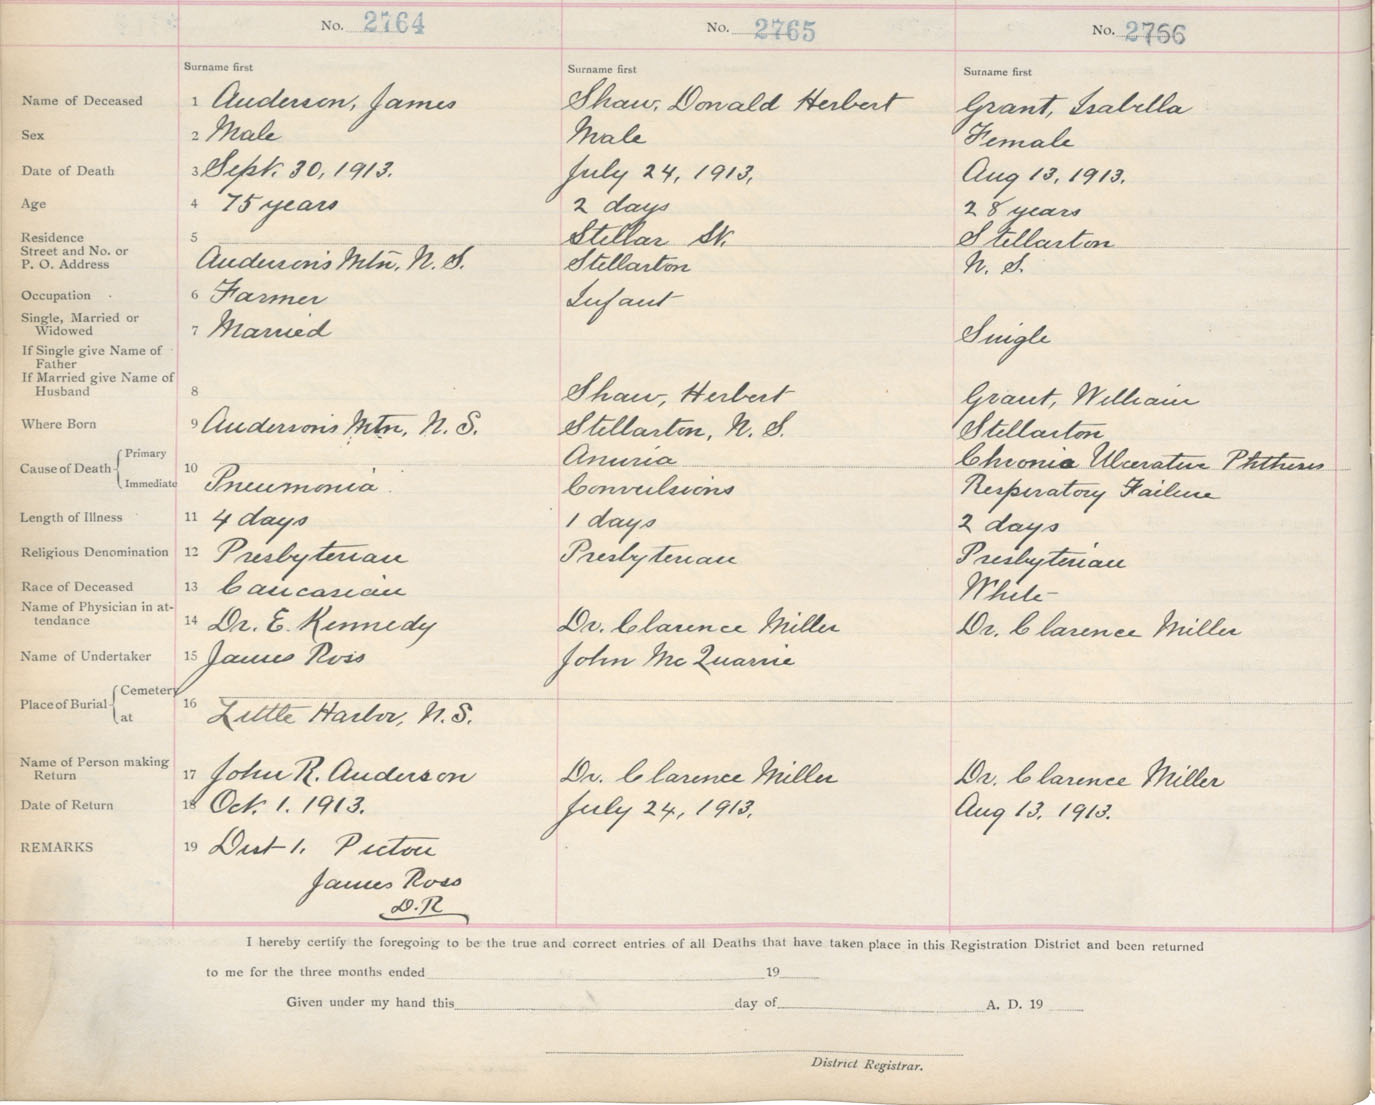 No. 2764 No. 2765 No. 2766
Surname first Surname first Surname first
Name of Deceased 1 Anderson, James Shaw, Donald Herbert Grant, Isabella
Sex 2 Male Male Female
Date of Death 3 Sept. 30, 1913. July 24, 1913, Aug 13, 1913.
Age 4 75 years 2 days 28 years
Residence 5 Stellar St. Stellarton
Street and No. or
P. O. Address Anderson's Mtn, N. S. Stellarton N. S.
Occupation 6 Farmer Infant
Single, Married or
Widowed 7 Married Single
If Single give Name of
Father
If Married give Name of
Husband 8 Shaw, Herbert Grant, William
Where Born 9 Anderson's Mtn, N. S. Stellarton, N. S. Stellarton
Primary Anuria Chronic Ulcerative Phthisis
Cause of Death 10
Immediate Pneumonia Convulsions Respiratory Failure
Length of Illness 11 4 days 1 days 2 days
Religious Denomination 12 Presbyterian Presbyterian Presbyterian
Race of Deceased 13 Caucasian White
Name of Physician in at-
tendance 14 Dr. E. Kennedy Dr. Clarence Miller Dr. Clarence Miller
Name of Undertaker 15 James Ross John McQuarrie
Cemetery
Place of Burial 16
at Little Harbor, N. S.
Name of Person making
Return 17 John R. Anderson Dr. Clarence Miller Dr. Clarence Miller
Date of Return 18 Oct. 1. 1913. July 24, 1913. Aug 13, 1913.
REMARKS 19 Dist 1. Pictou
James Ross
D. R
I hereby certify the foregoing to be the true and correct entries of all Deaths that have taken place in this Registration District and been returned
to me for the three months ended 19
Given under my hand this day of A. D. 19
District Registrar.